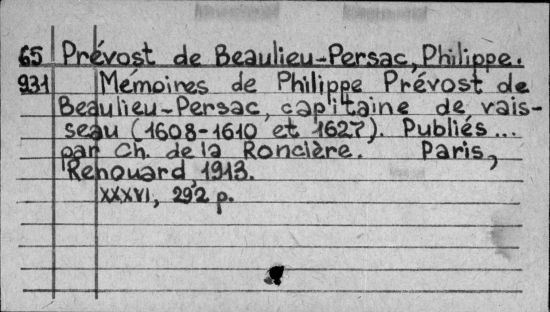 65 Prévost de Beaulieu-Persac, Philippe.
931 Mémoires de Philippe Prévost de
Beaulieu-Persac, capitaine de vais-
seau (1608-1610 et 1627). Publiés...
par Ch. de la Roncière. Paris,
Renouard 1913.
XXXVI, 292 p.